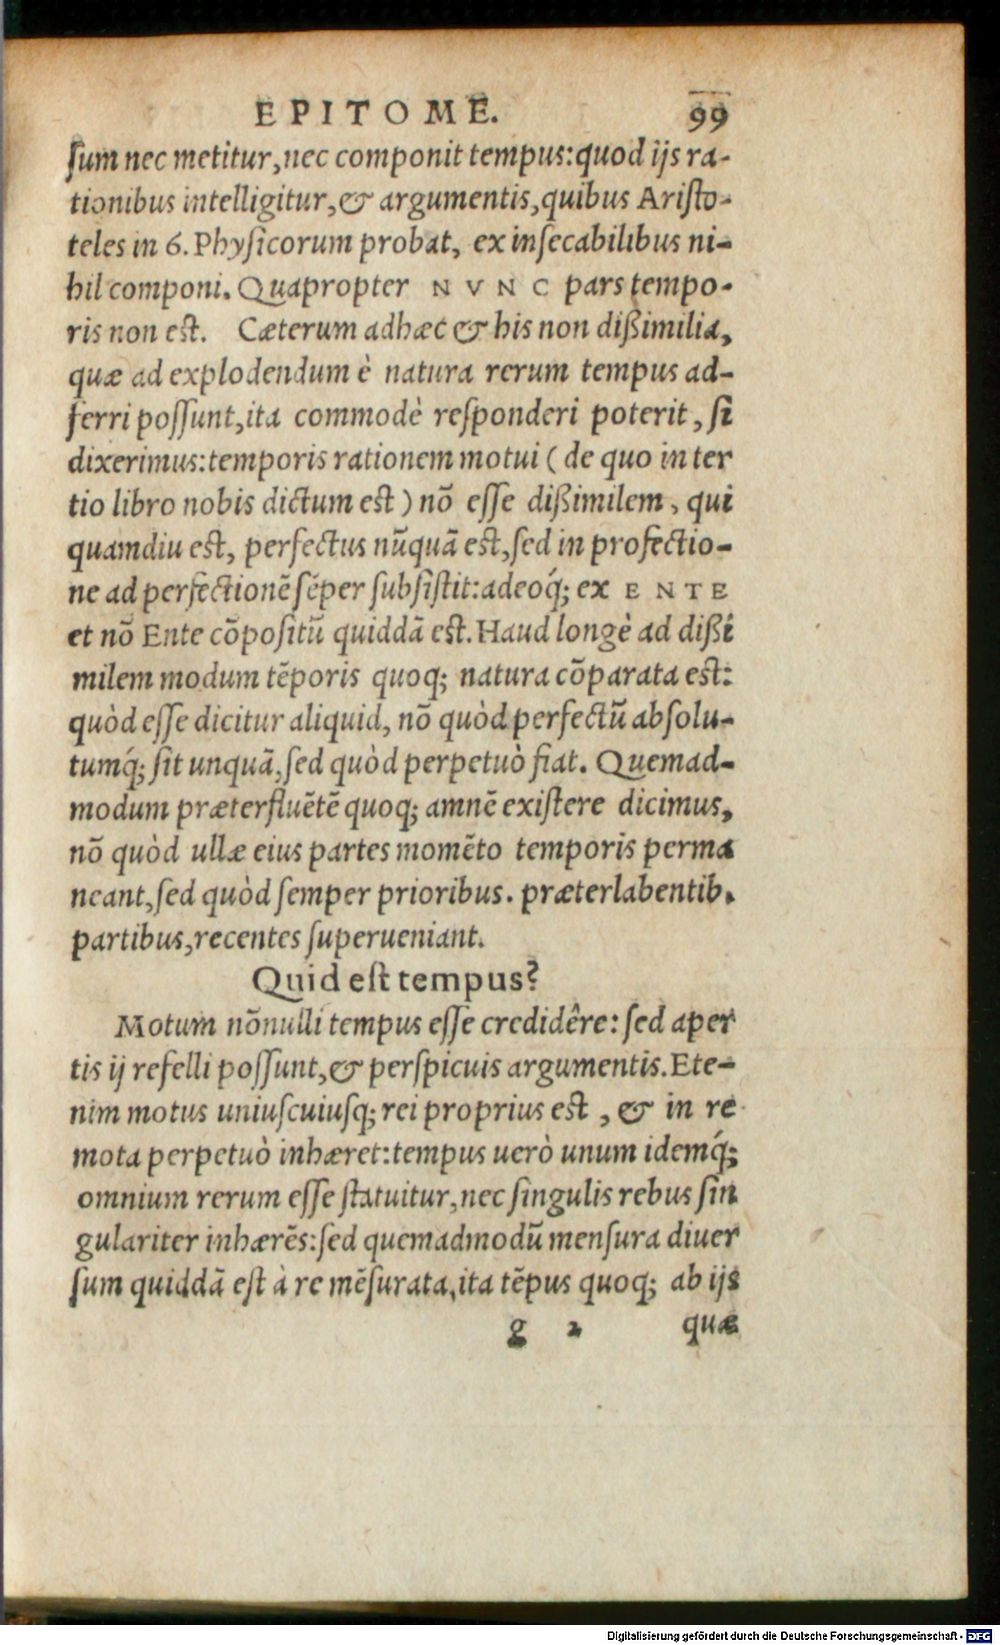 EPITOME. 99
sum nec metitur, nec componit tempus: quod ijs ra-
tionibus intelligitur, & argumentis, quibus Aristo-
teles in 6. Physicorum probat, ex insecabilibus ni-
hil componi. Quapropter NVNC pars tempo-
ris non est. Cæterum ad hæc & his non dißimilia,
quæ ad explodendum è natura rerum tempus ad-
ferri possunt, ita commodè responderi poterit, si
dixerimus: temporis rationem motui (de quo in ter
tio libro nobis dictum est) nõ esse dißimilem, qui
quamdiu est, perfectus nũquã est, sed in profectio-
ne ad perfectionẽ sẽper subsistit: adeoq́; ex ENTE
et nõ Ente cõpositũ quiddã est. Haud longè ad dißi
milem modum tẽporis quoq; natura cõparata est:
quòd esse dicitur aliquid, nõ quòd perfectũ absolu-
tumq́; sit unquã, sed quòd perpetuò fiat. Quemad-
modum præterfluẽtẽ quoq; amnẽ existere dicimus,
nõ quòd ullæ eius partes momẽto temporis perma
neant, sed quòd semper prioribus. præterlabentib.
partibus, recentes superueniant.
Quid est tempus?
Motum nõnulli tempus esse credidêre: sed aper
tis ij refelli possunt, & perspicuis argumentis. Ete-
nim motus uniuscuiusq; rei proprius est, & in re
mota perpetuò inhæret: tempus uerò unum idemq́;
omnium rerum esse statuitur, nec singulis rebus sin
gulariter inhærẽs: sed quemadmodũ mensura diuer
sum quiddã est à re mẽsurata, ita tẽpus quoq; ab ijs
g 2 quæ
Digitalisierung gefördert durch die Deutsche Forschungsgemeinschaft - DFG